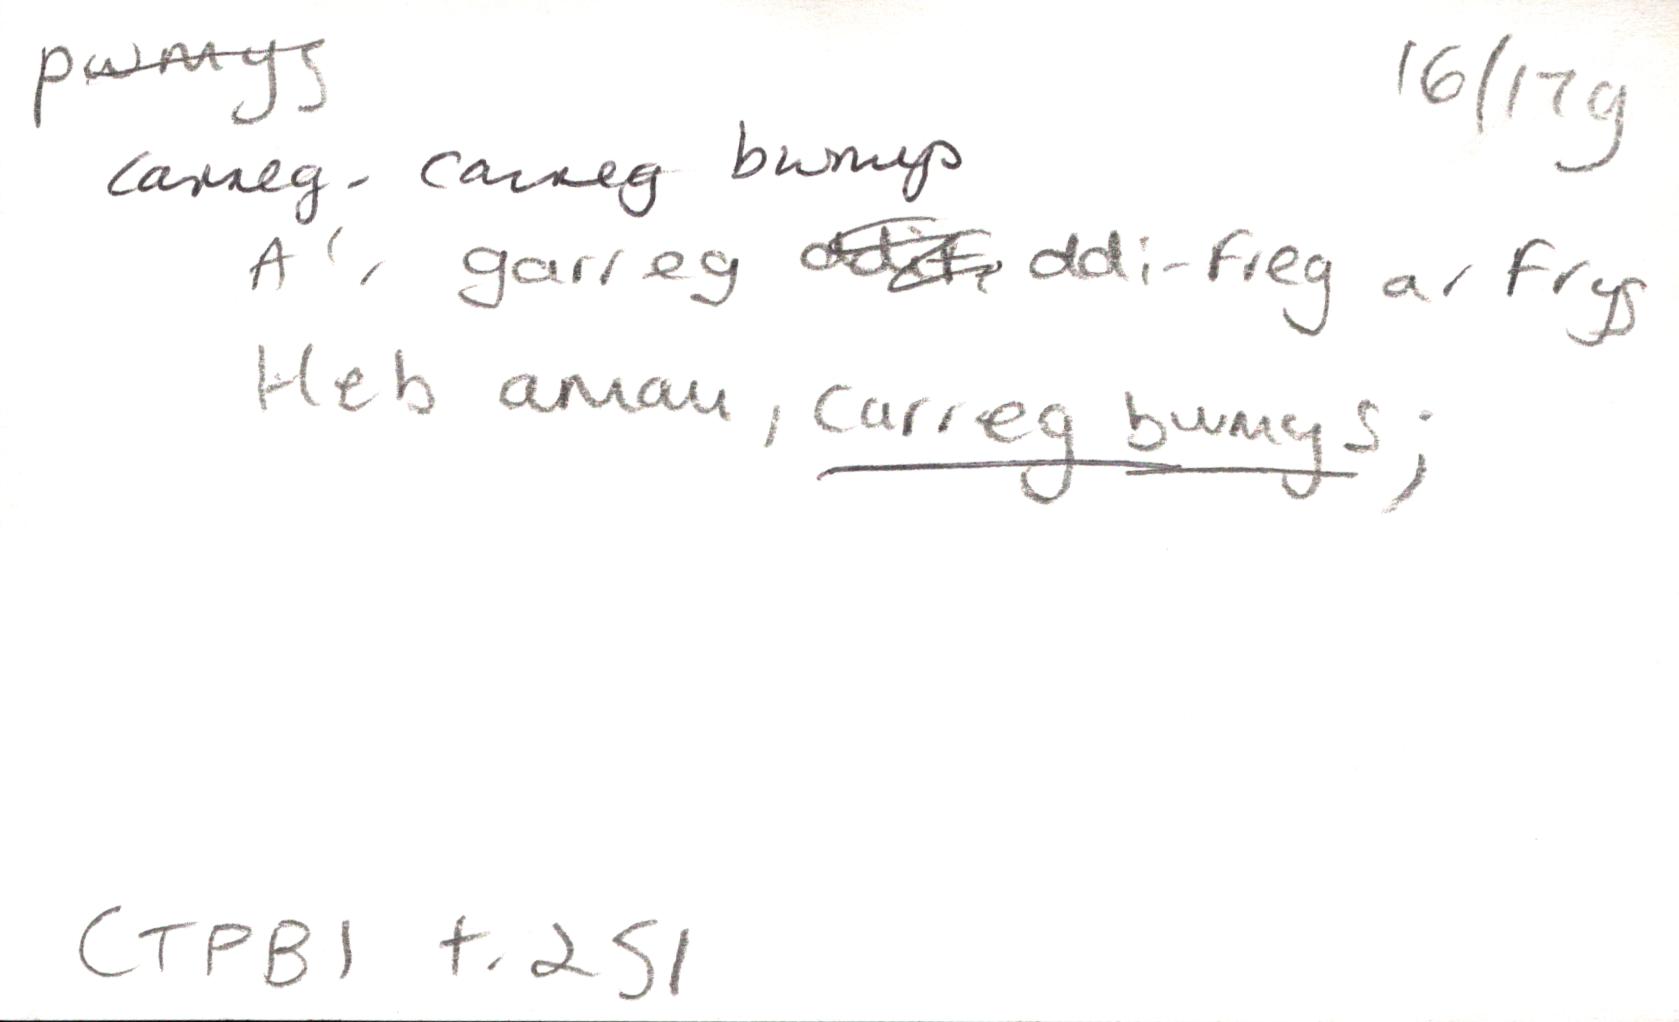 pwmys 16/17g
carreg - carreg bwmys
A'r garreg ddi-freg ar frys
Heb amau, carreg bwmys;
CTPB1 t. 251